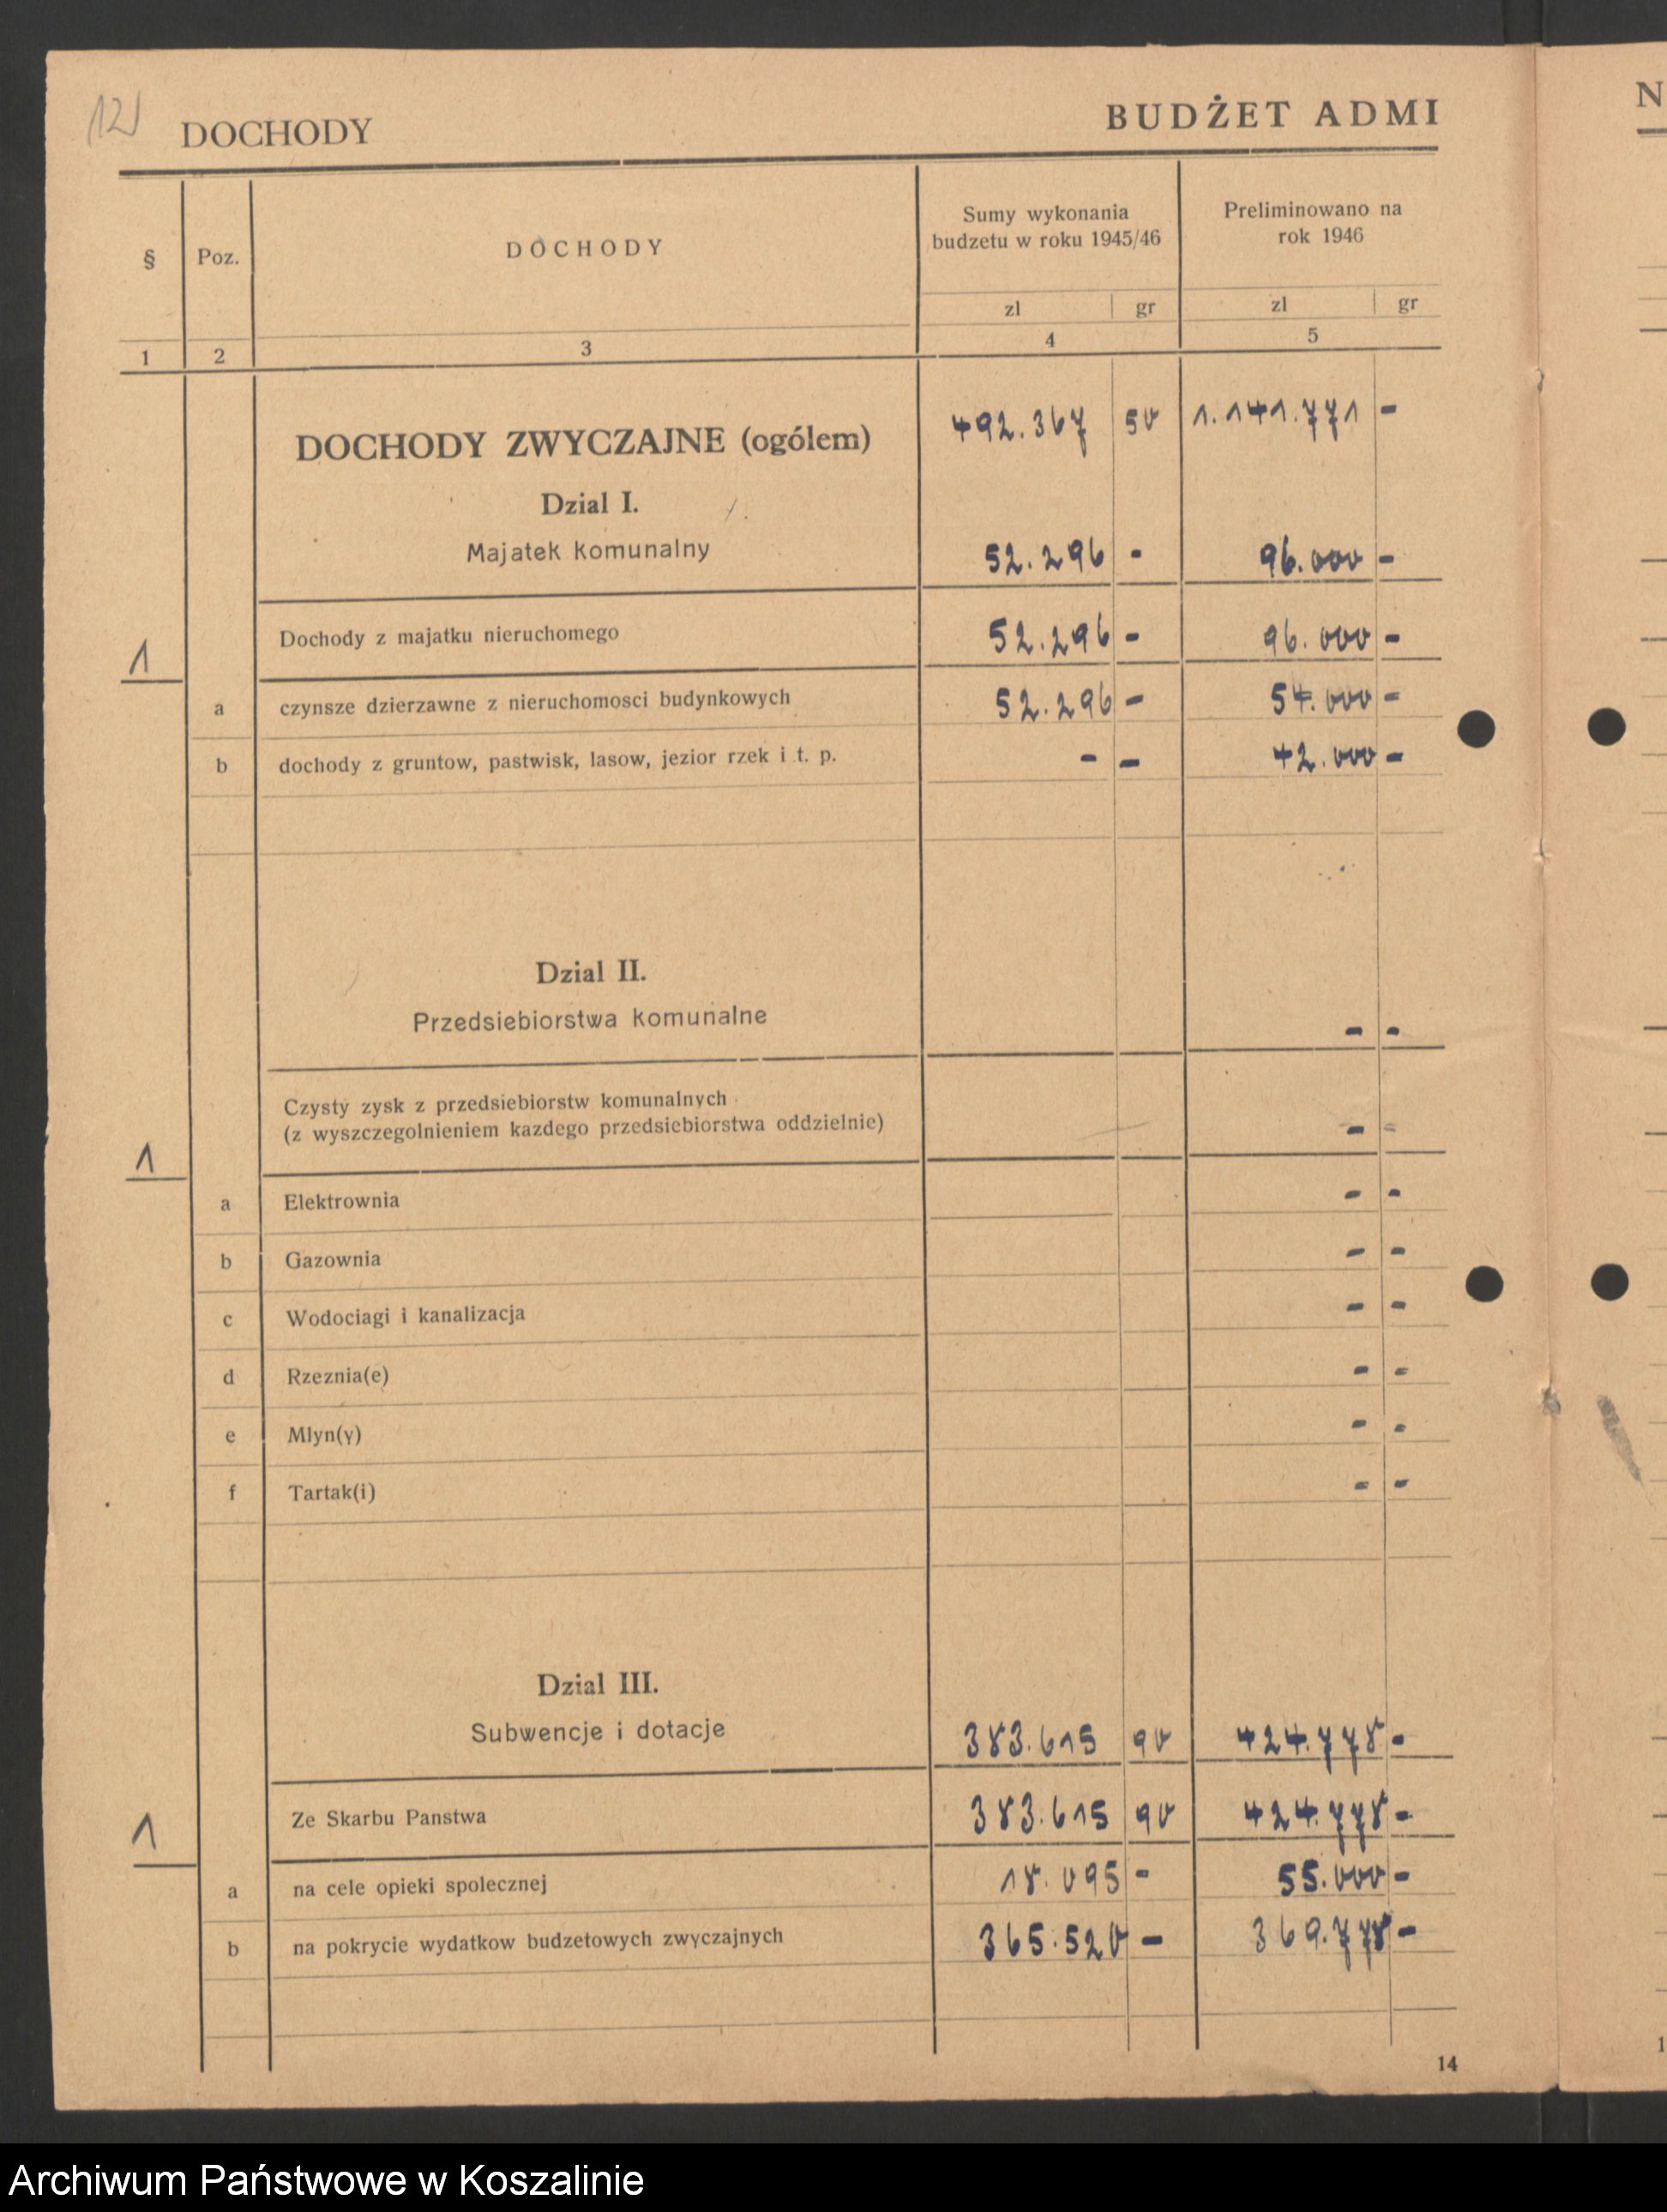 12
DOCHODY
BUDŻET ADMI
N
§
Poz.
DOCHODY
Sumy wykonania
budzetu w roku 1945/46
Preliminowano na
rok 1946
zl gr zl gr
1 2 3 4 5
DOCHODY ZWYCZAJNE (ogólem) 492.367 50 1.141.771 -
Dzial I.
Majatek komunalny 52.296 - 96.000 -
1 Dochody z majatku nieruchomego 52.296 - 96.000 -
a czynsze dzierzawne z nieruchomosci budynkowych 52.296 - 54.000 -
b dochody z gruntow, pastwisk, lasow, jezior rzek i t. p. - - 42.000 -
Dzial II.
Przedsiebiorstwa komunalne - -
Czysty zysk z przedsiebiorstw komunalnych
1 (z wyszczegolnieniem kazdego przedsiebiorstwa oddzielnie) - -
a Elektrownia - -
b Gazownia - -
c Wodociagi i kanalizacja - -
d Rzeznia(e) - -
e Mlyn(y) - -
f Tartak(i) - -
Dzial III.
Subwencje i dotacje 383.615 90 424.778 -
1 Ze Skarbu Panstwa 383.615 90 424.778 -
a na cele opieki spolecznej 18.095 - 55.000 -
b na pokrycie wydatkow budzetowych zwyczajnych 365.520 - 369.778 -
14
1
Archiwum Państwowe w Koszalinie